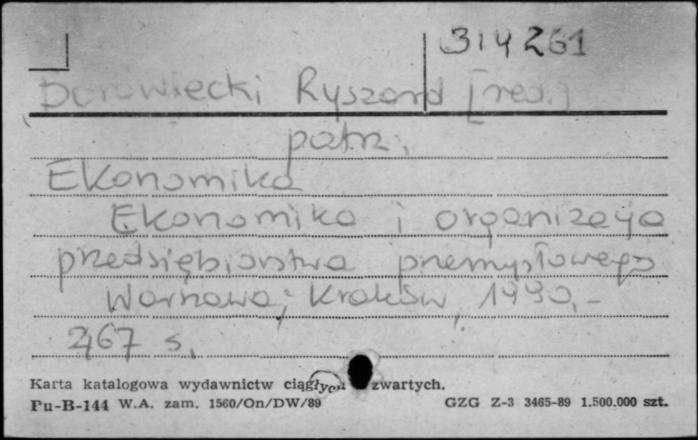 314261
Borowiecki Ryszard [red.]
patrz.
Ekonomika
Ekonomika i organizacja
przedsiębiorstwa przemysłowego
Warszawa; Kraków, 1990,-
267 s.
Karta katalogowa wydawnictw ciągłych i zwartych.
Pu-B-144 W.A. zam. 1560/On/DW/89 GZG Z-3 3465-89 1.500.000 szt.